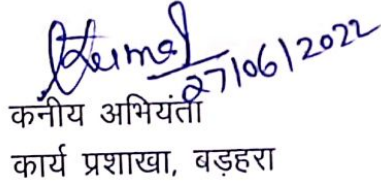 27/06/2022
कनीय अभियंता
कार्य प्रशाखा, बड़हरा